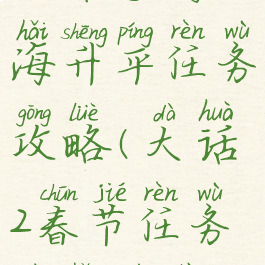 hǎi shēng píng rèn wù
海升平任务
gōng lüè dà huà
攻略(大话
chūn jié rèn wù
2春节任务